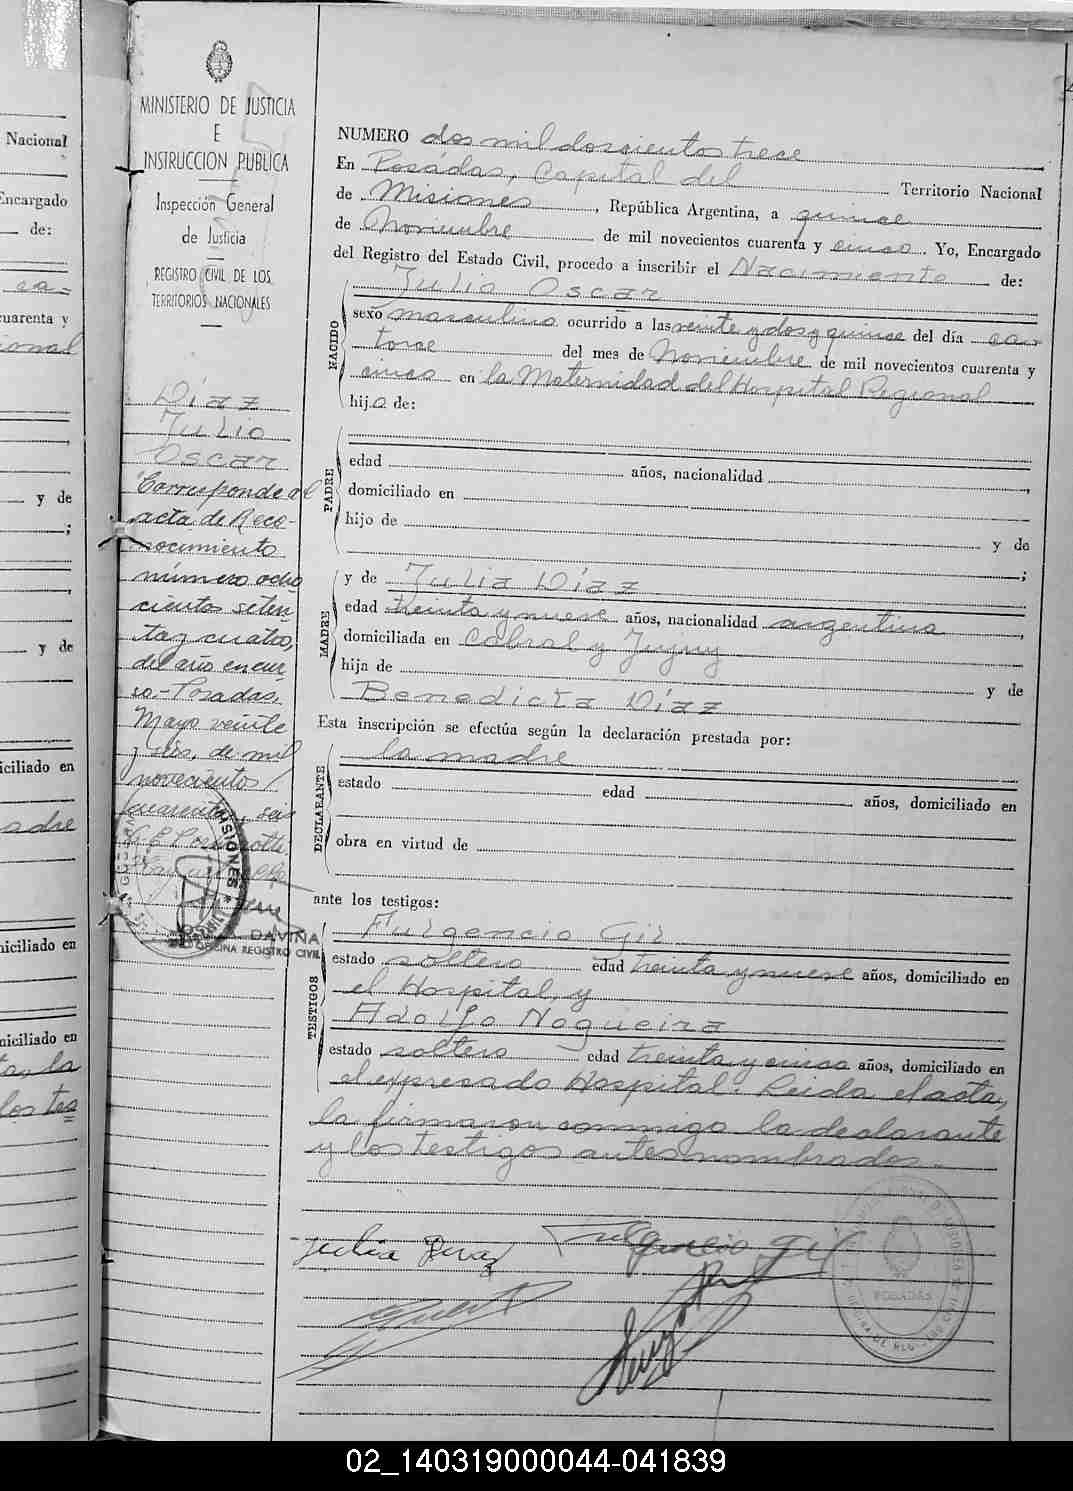 Nacional
Encargado
de:
cuarenta y
y de
;
y de
iciliado en
adre
niciliado en
niciliado en
la
los tes
MINISTERIO DE JUSTICIA
E
INSTRUCCION PUBLICA
Inspección General
de Justicia
REGISTRO CIVIL DE LOS
TERRITORIOS NACIONALES
Díaz
Julio
Oscar
Corresponde al
acta de Reco-
nocimiento
número ocho
cientos seten
ta y cuatro,
del año en cur
so.- Posadas,
Mayo veinte
y seis, de mil
novecientos
cuarenta y seis
MISIONES
DAVIÑA
OFICINA REGISTRO CIVIL
NUMERO dos mil doscientos trece
En Posadas, Capital del Territorio Nacional
de Misiones, República Argentina, a quince
de Noviembre de mil novecientos cuarenta y cinco. Yo, Encargado
del Registro del Estado Civil, procedo a inscribir el Nacimiento de:
NACIDO
Julio Oscar
sexo masculino ocurrido a las veinte y dos y quince del día ca-
torce del mes de Noviembre de mil novecientos cuarenta y
cinco en la Maternidad del Hospital Regional
hijo de:
PADRE
edad años, nacionalidad ,
domiciliado en
hijo de y de
;
MADRE
y de Julia Díaz
edad treinta y nueve años, nacionalidad argentina,
domiciliada en Cabral y Jujuy
hija de y de
Benedicta Díaz
Esta inscripción se efectúa según la declaración prestada por:
DECLARANTE
la madre
estado edad años, domiciliado en
obra en virtud de
ante los testigos:
TESTIGOS
Fulgencio Gil
estado soltero edad treinta y nueve años, domiciliado en
el Hospital, y
Adolfo Nogueira
estado soltero edad treinta y cinco años, domiciliado en
el expresado Hospital. Leida el acta,
la firmaron conmigo la declarante
y los testigos antes nombrados.-
Julia Diaz Fulgencio Gil
POSADAS
02_140319000044-041839